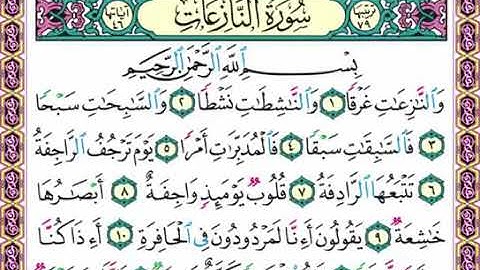 ترتيبها ٧٩ سُورَةُ النَّازِعَاتِ آياتها ٤٦
بِسْمِ ٱللَّهِ ٱلرَّحْمَٰنِ ٱلرَّحِيمِ
وَٱلنَّٰزِعَٰتِ غَرْقًا ١ وَٱلنَّٰشِطَٰتِ نَشْطًا ٢ وَٱلسَّٰبِحَٰتِ سَبْحًا
٣ فَٱلسَّٰبِقَٰتِ سَبْقًا ٤ فَٱلْمُدَبِّرَٰتِ أَمْرًا ٥ يَوْمَ تَرْجُفُ ٱلرَّاجِفَةُ
٦ تَتْبَعُهَا ٱلرَّادِفَةُ ٧ قُلُوبٌ يَوْمَئِذٍ وَاجِفَةٌ ٨ أَبْصَٰرُهَا
خَٰشِعَةٌ ٩ يَقُولُونَ أَءِنَّا لَمَرْدُودُونَ فِى ٱلْحَافِرَةِ ١٠ أَءِذَا كُنَّا